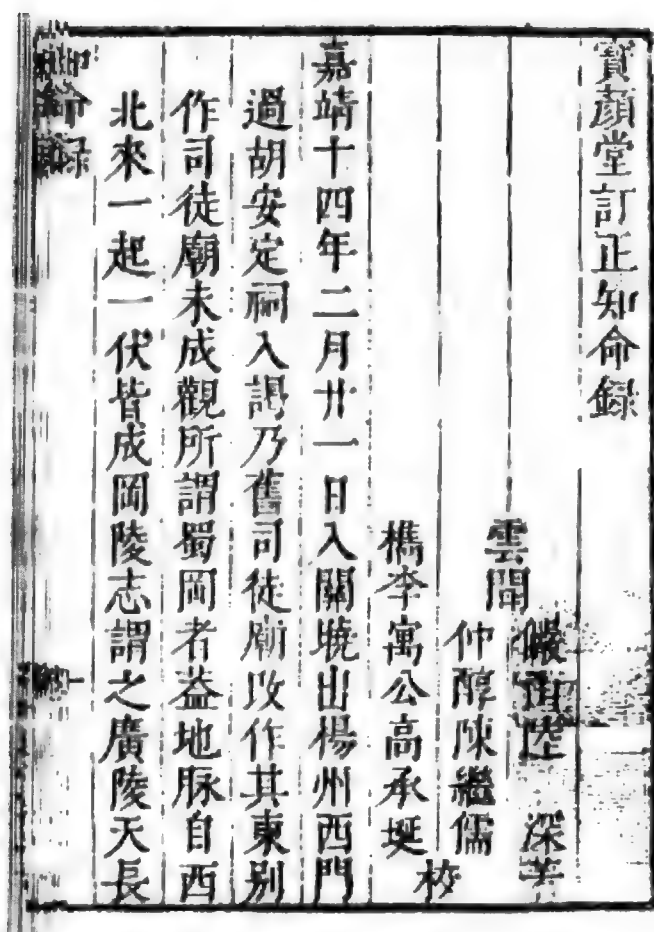 寶顏堂訂正知命録
雲間
儼山陸　深著
仲醇陳繼儒
檇李寓公高承埏
校
嘉靖十四年二月廿一日入關境出楊州西門
過胡安定祠入謁乃舊司徒廟改作其東别
作司徒廟未成觀所謂蜀岡者葢地脉自西
北來一起一伏皆成岡陵志謂之廣陵天長
知命録